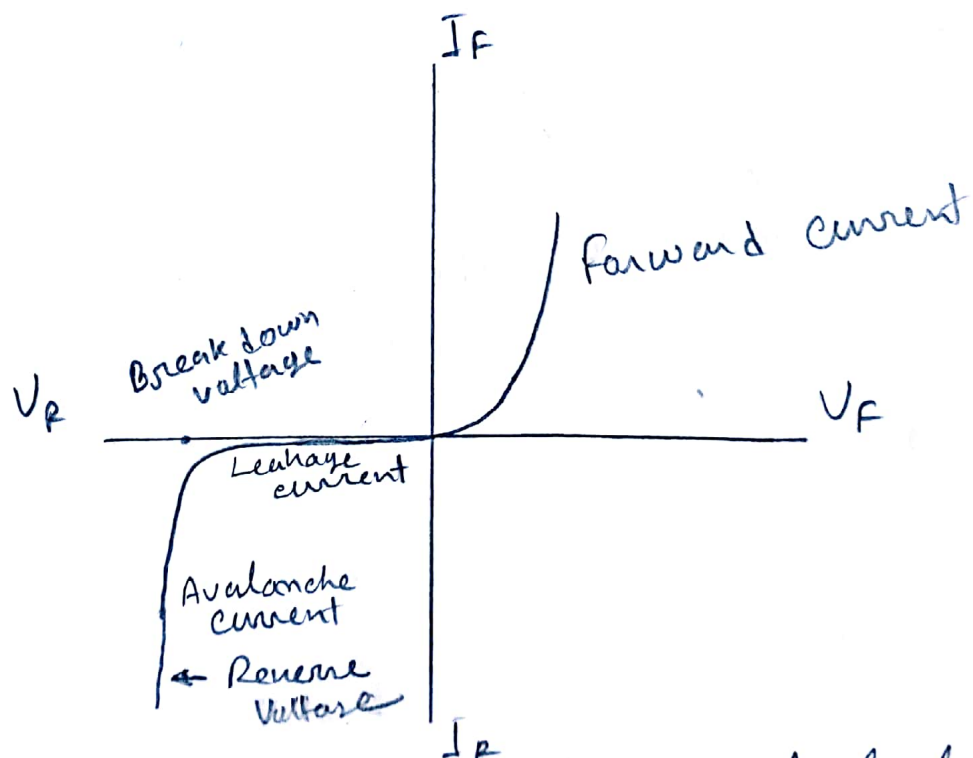 I_F
Forward current
Break down
voltage
V_R
V_F
Leakage
current
Avalanche
current
← Reverse
Voltage
I_R